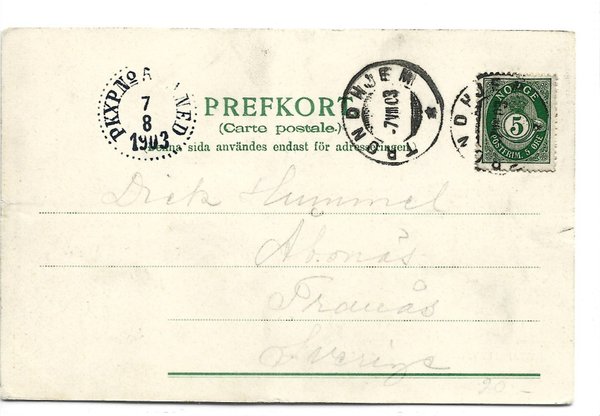 PKXP.No 
7
8
1903
PREFKORT
(Carte postale.)
(Denna sida användes endast för adresseringen)
TRONDHJEM
-7 VIII 03
NORGE
5
POSTFRIM. 5 ØRE
Dick Hummel
Åbonäs
Tranås
Sverige
20-